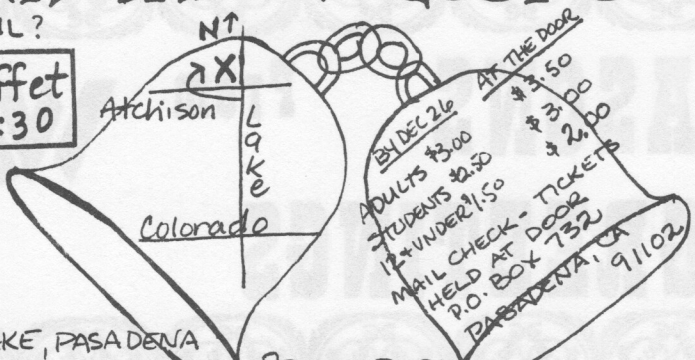 IL?
ffet
:30
N↑
X
Atchison
Lake
Colorado
KE, PASADENA
AT THE DOOR
BY DEC 26
ADULTS $3.00 $3.50
STUDENTS $2.50 $3.00
12 & UNDER $1.50 $2.00
MAIL CHECK - TICKETS
HELD AT DOOR
P.O. BOX 732
PASADENA, CA
91102